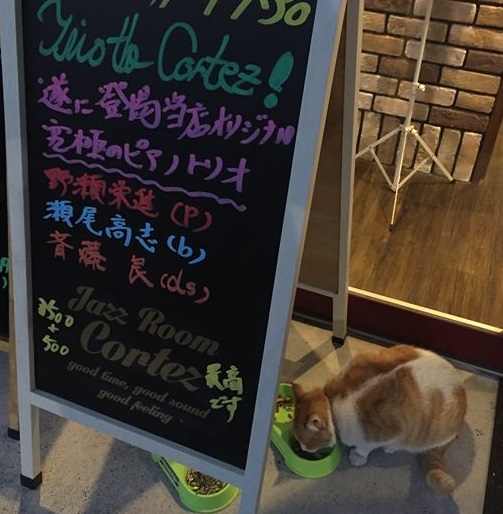 Trio the Cortez!
遂に登場当店オリジナル
究極のピアノトリオ
野瀬栄進(P)
瀬尾高志(b)
斉藤 良(ds)
Jazz Room
Cortez
¥3500
+
500
good time, good sound
good feeling
最高
です